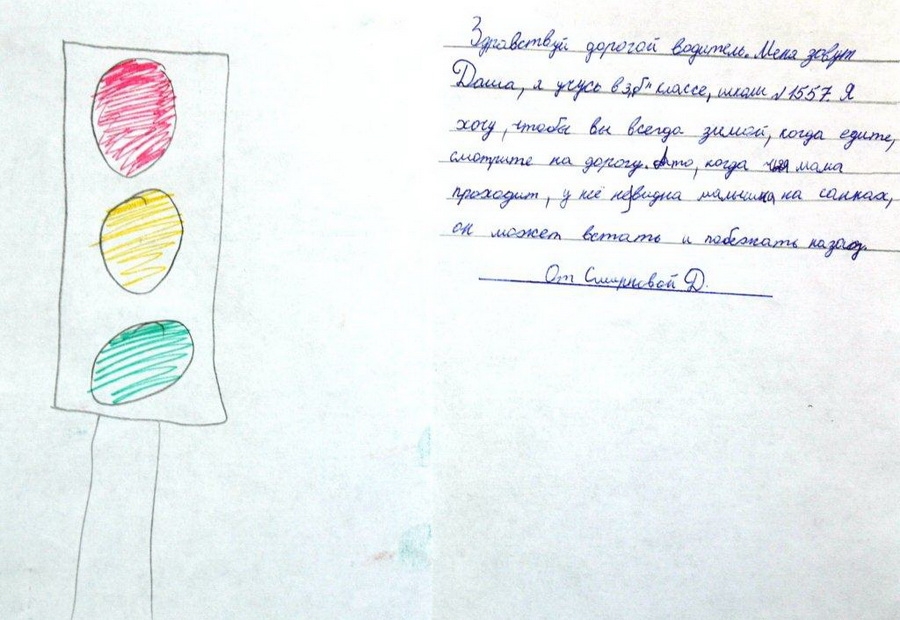 Здравствуй дорогой водитель. Меня зовут
Даша, я учусь в 3 „б" классе, школы №1557. Я
хочу, чтобы вы всегда зимой, когда едите,
смотрите на дорогу. А то, когда мама
проходит, у неё не видна мальчика на санках,
он может встать и побежать назад.
От Смирновой Д.